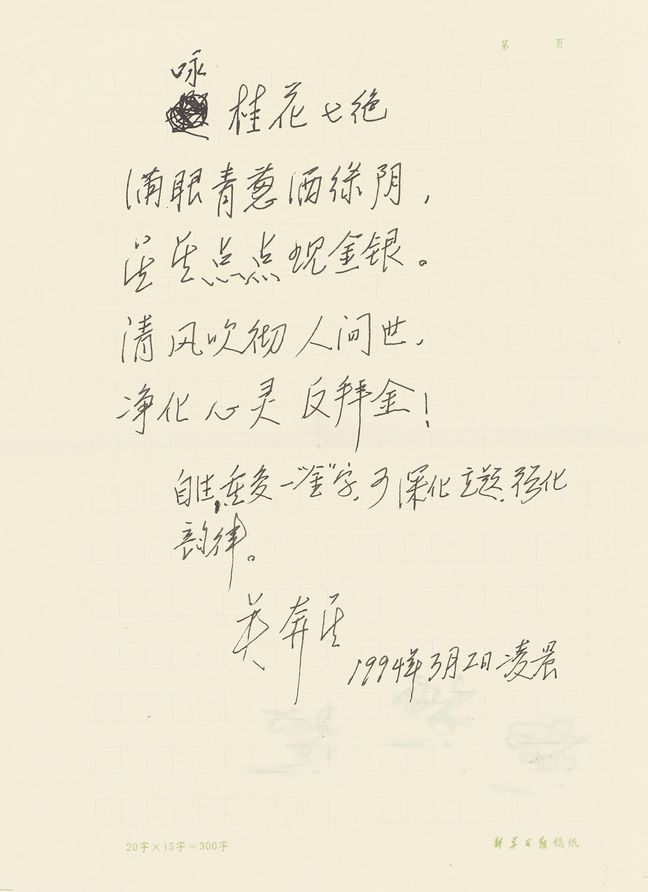 第 页
咏
桂花七绝
满眼青葱洒绿阴,
星星点点现金银。
清风吹彻人间世,
净化心灵反拜金!
自注:重复一“金”字,可深化主题,强化
韵律。
吴奔星
1994年3月2日凌晨
20字×15字=300字 新华日报稿纸